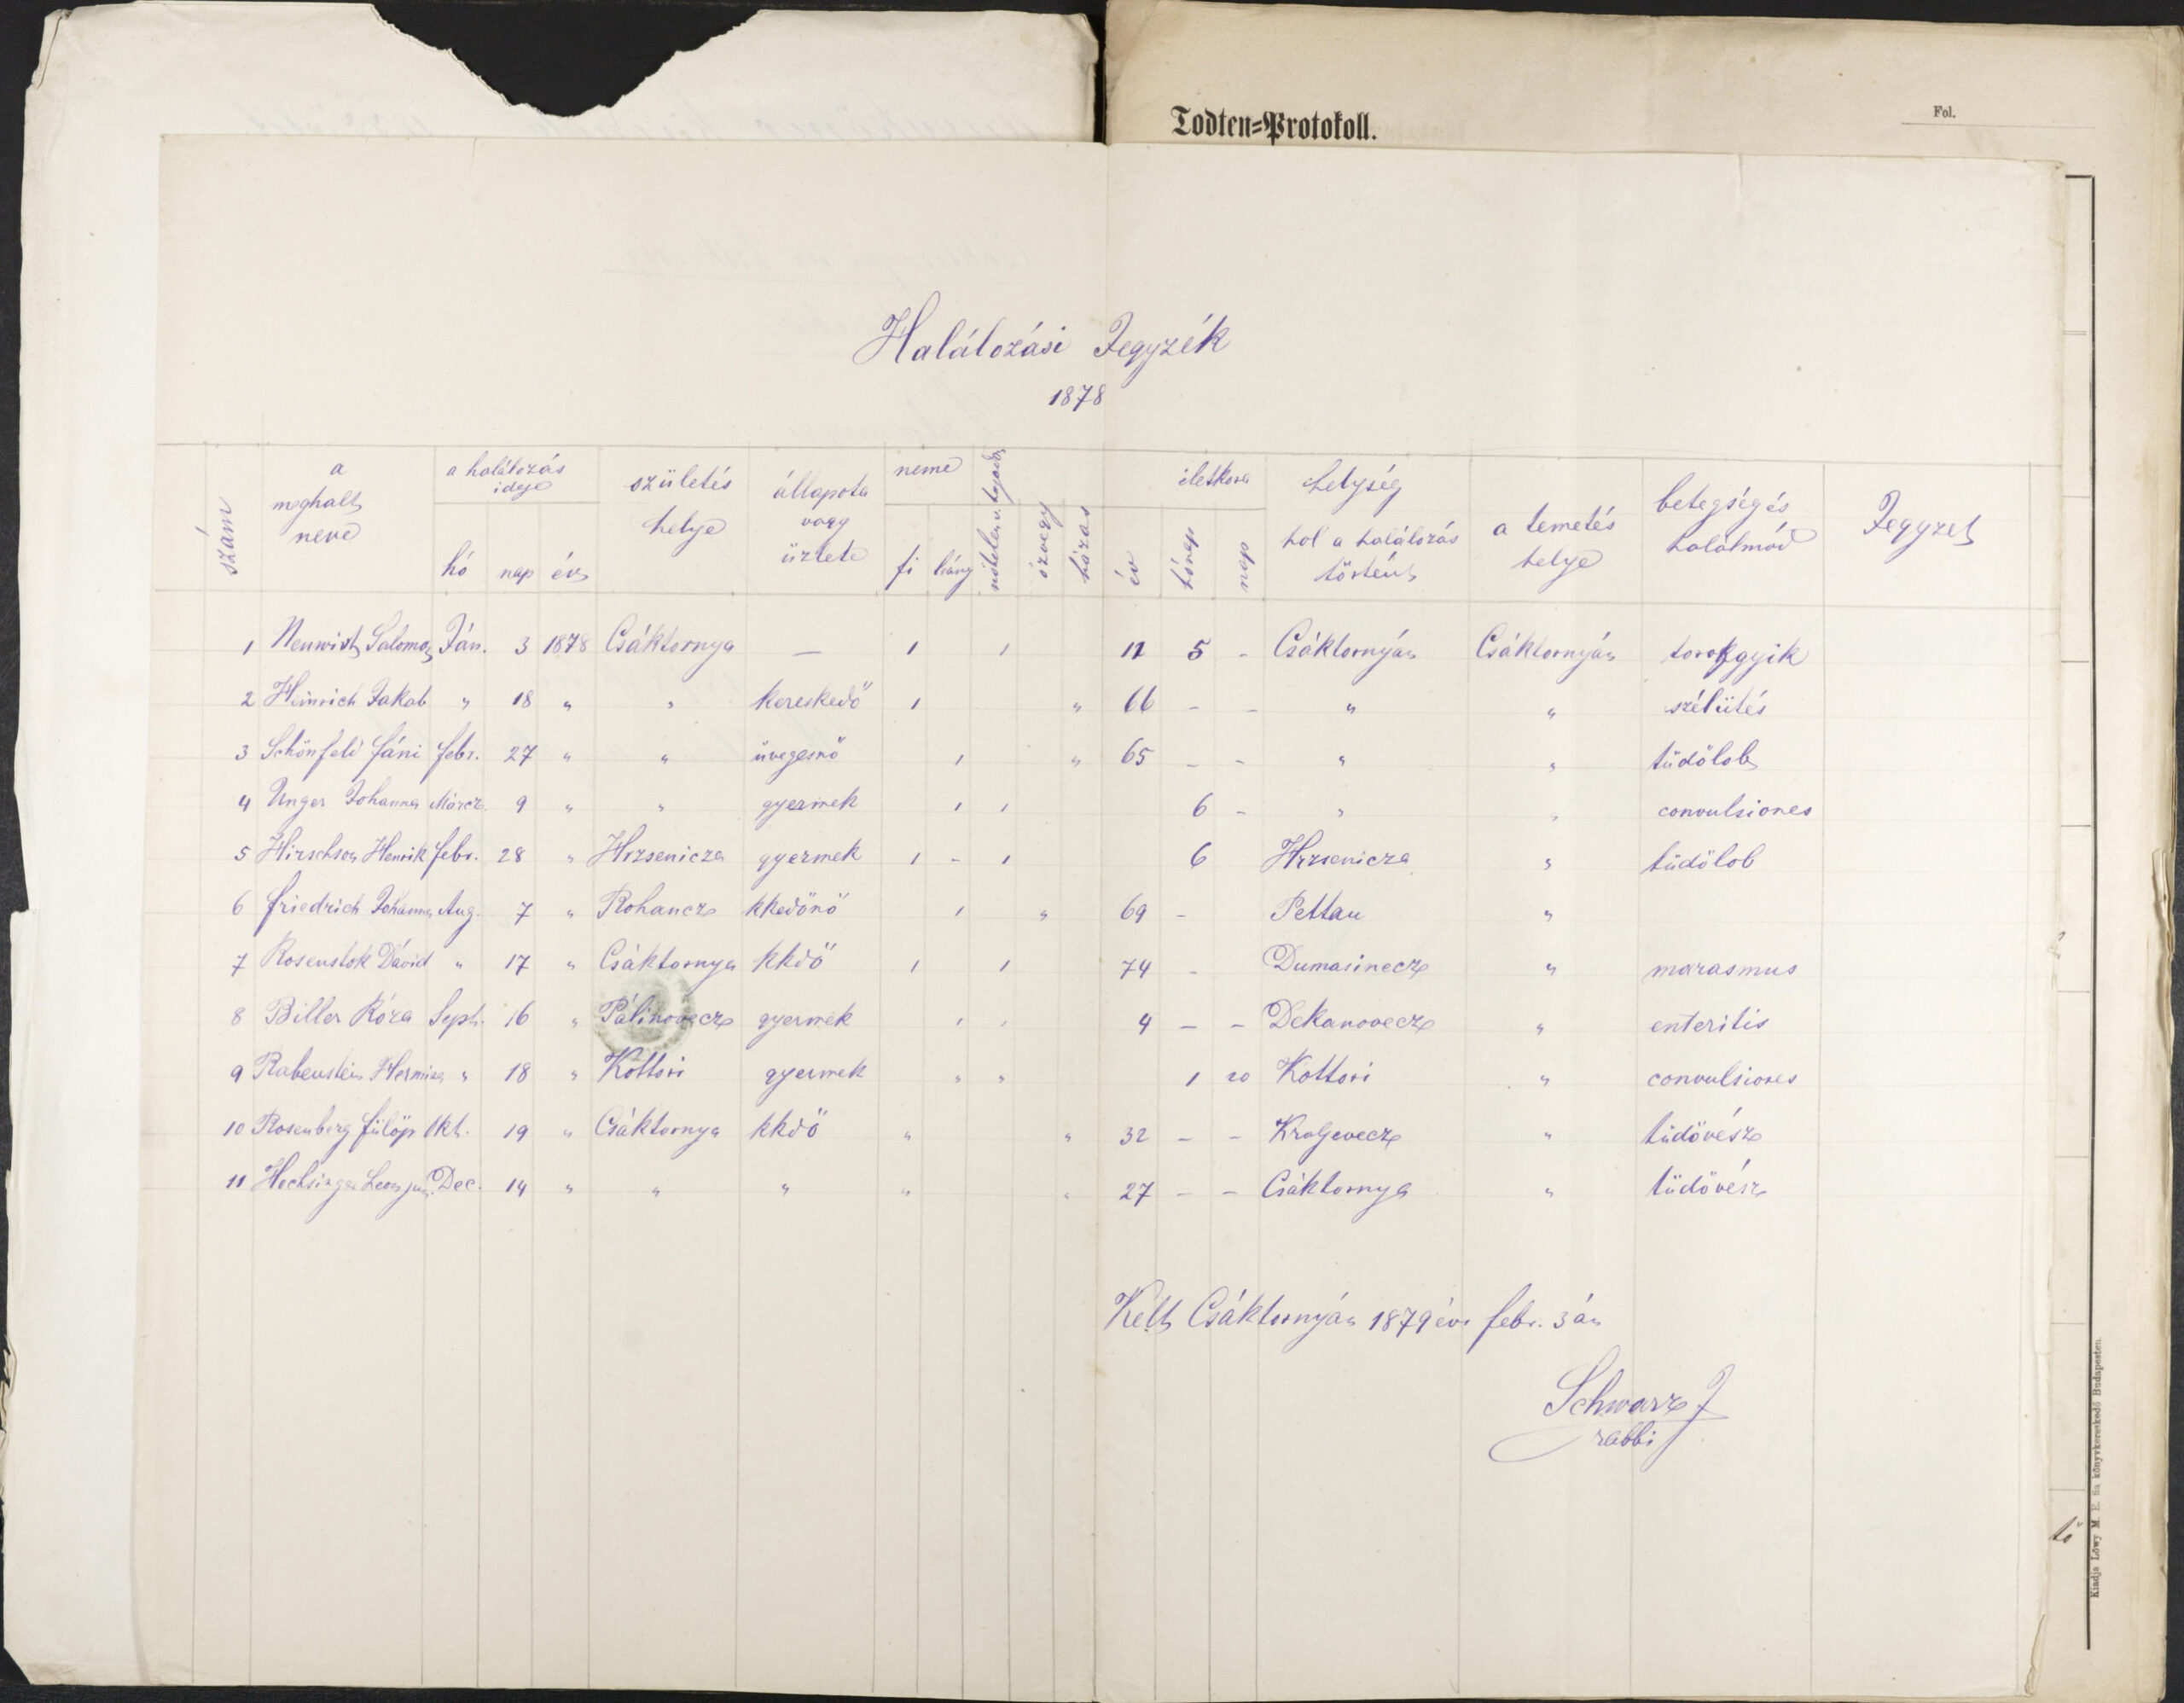 Todten=Protokoll.
Fol.
Halálozási Jegyzék
1878
szám
a meghalt neve
a halálozás ideje
hó nap év
születés helye
állapota vagy üzlete
neme
fi leány
nőtelen v. hajadon
özvegy
házas
életkora
év hónap nap
helység hol a halálozás történt
a temetés helye
betegség és halálmód
Jegyzet
1 Neuwirth Salomon Ján. 3 1878 Csáktornya — 1 1 11 5 - Csáktornyán Csáktornyán torokgyik
2 Heinrich Jakab " 18 " " kereskedő 1 " 66 - - " " szélütés
3 Schönfeld Fáni febr. 27 " " üvegesnő 1 " 65 - - " " tüdőlob
4 Unger Johanna Márcz. 9 " " gyermek 1 1 6 - " " convulsiones
5 Hirschson Henrik febr. 28 " Hrzsenicza gyermek 1 - 1 6 Hrzsenicza " tüdőlob
6 Friedrich Johanna Aug. 7 " Rohancz kkedőnő 1 " 69 - Pettau "
7 Rosenstok Dávid " 17 " Csáktornya kkdő 1 1 74 - Dumasinecz " marasmus
8 Biller Róza Sept. 16 " Pálinovecz gyermek 1 1 4 - - Dekanovecz " enteritis
9 Rabenstein Hermina " 18 " Kottori gyermek " " 1 20 Kottori " convulsiones
10 Rosenberg Fülöp Okt. 19 " Csáktornya kkdő " " 32 - - Kraljevecz " tüdővész
11 Hochsinger Leon jun. Dec. 14 " " " " " 27 - - Csáktornya " tüdővész
Kelt Csáktornyán 1879 év febr. 3 án
Schwarz J
rabbi
tő
Kiadja Löwy M. E. fia könyvkereskedő Budapesten.